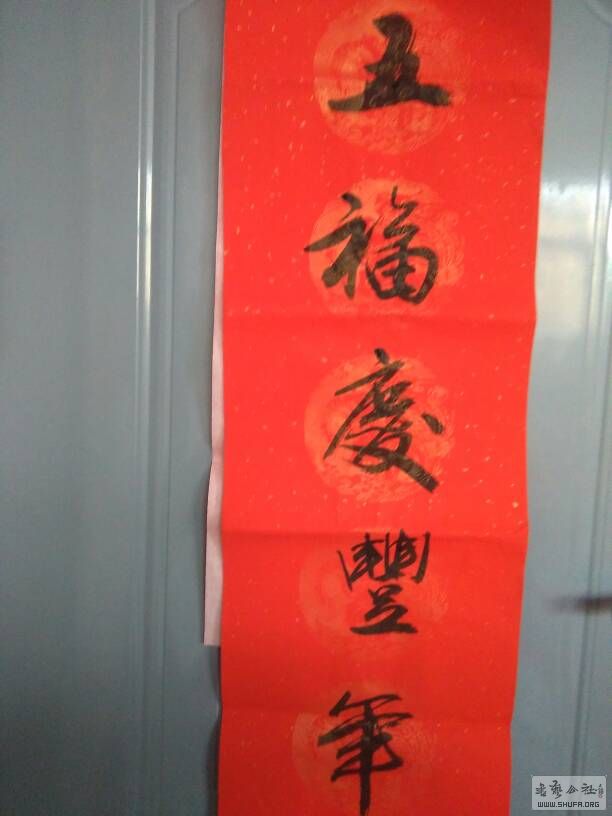 五福慶豐年
WWW.SHUFA.ORG